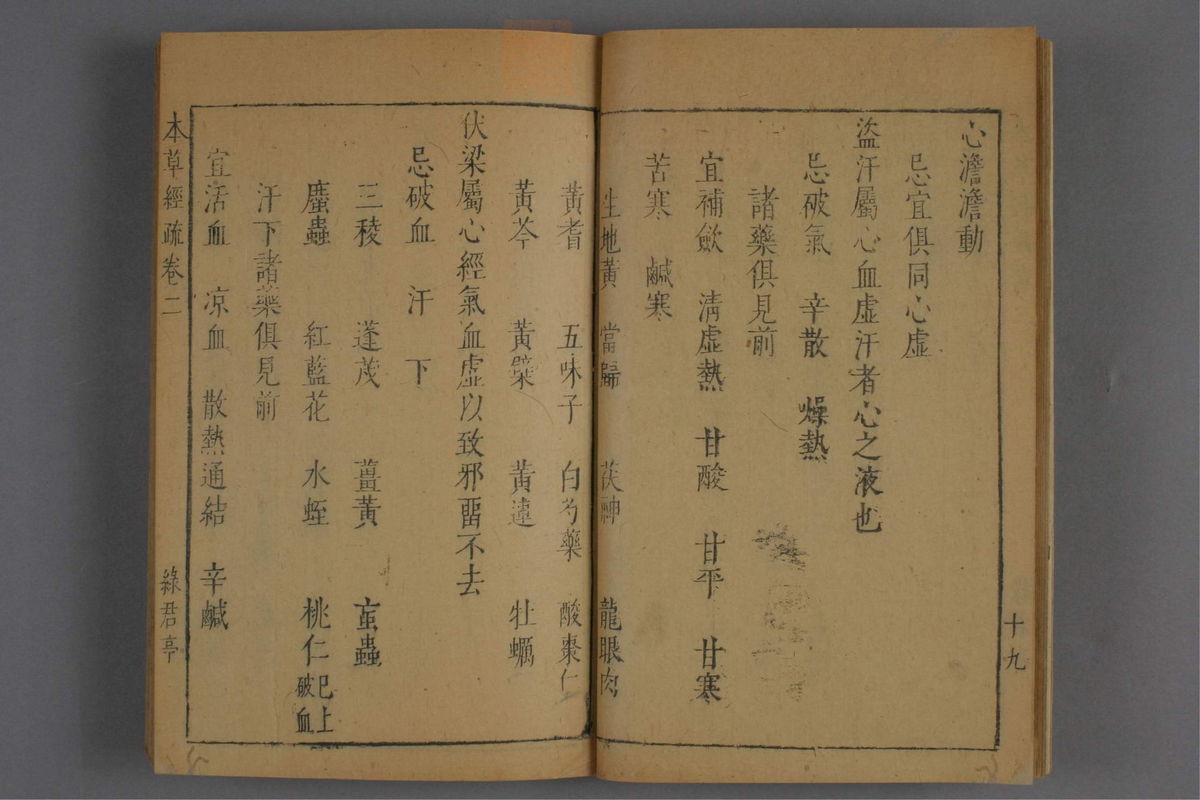 心澹澹動
忌宜俱同心虛
盜汗屬心血虛汗者心之液也
忌破氣 辛散 燥熱
諸藥俱見前
宜補歛 淸虛熱 甘酸 甘平 甘寒
苦寒 鹹寒
生地黃 當歸 茯神 龍眼肉
黃耆 五味子 白芍藥 酸棗仁
黃芩 黃檗 黃連 牡蠣
伏梁屬心經氣血虛以致邪畱不去
忌破血 汗 下
三稜 蓬茂 薑黃 䖟蟲
䗪蟲 紅藍花 水蛭 桃仁 巳上破血
汗下諸藥俱見前
宜活血 凉血 散熱通結 辛鹹
十九
本草經疏卷二
綠君亭